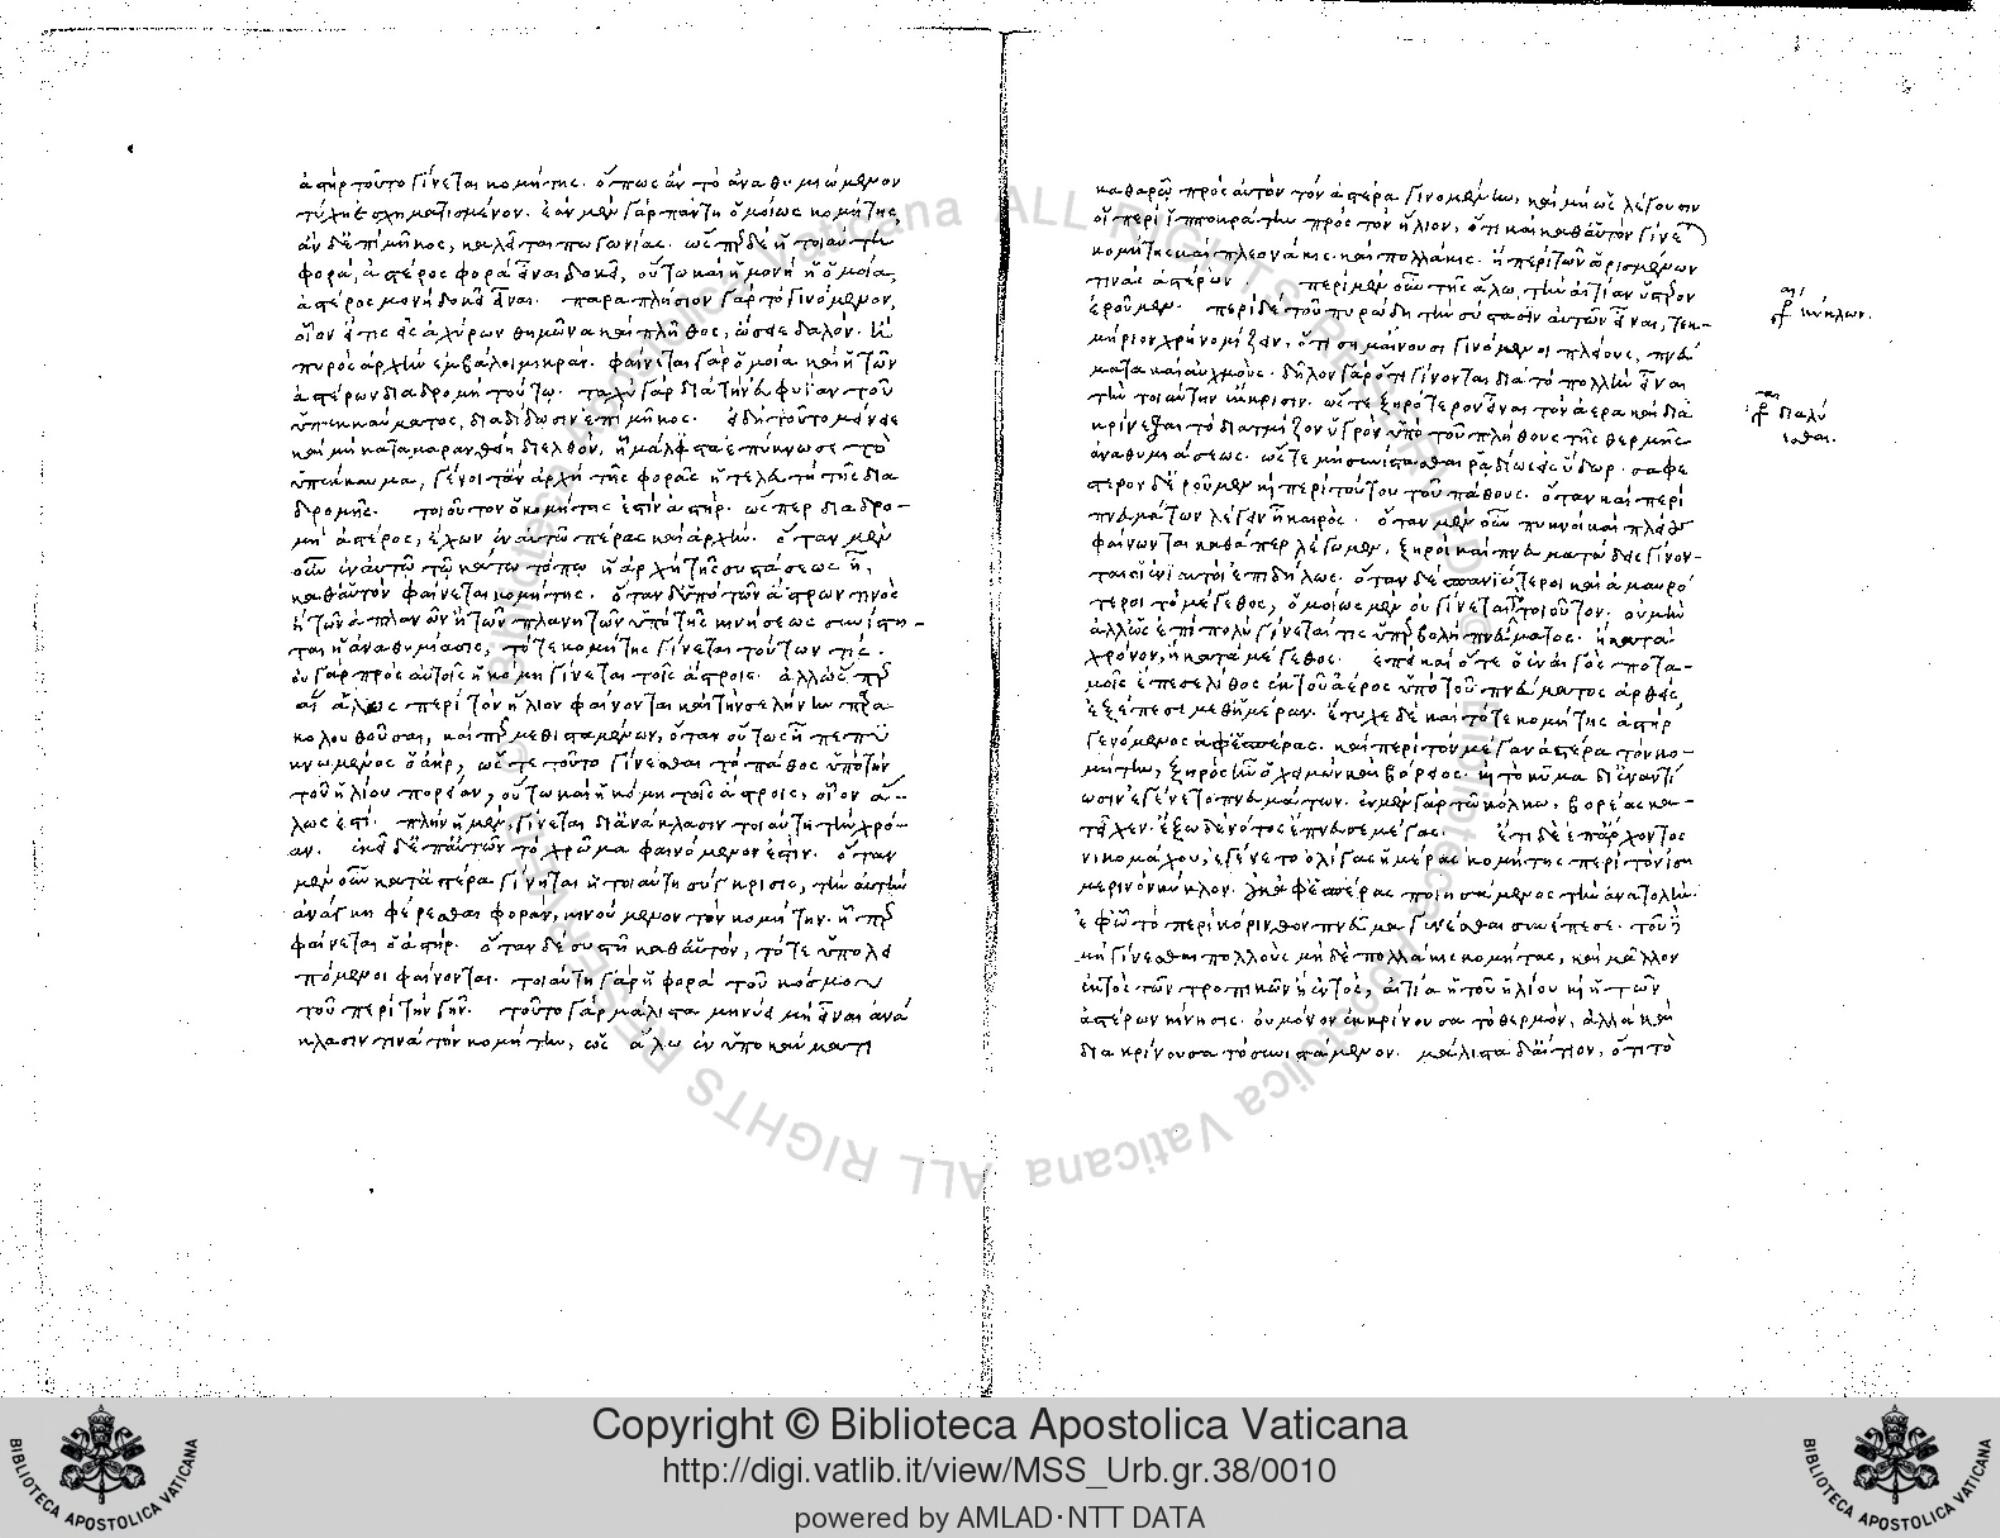 ἀστὴρ τοῦτο γίνεται κομήτης. ὅπως ἂν τὸ ἀναθυμιώμενον
τύχη ἐσχηματισμένον. ἐὰν μὲν γὰρ πάντη ὁμοίως κομήτης,
ἂν δ' ἐπὶ μῆκος, καλεῖται πωγωνίας. ὥσπερ δὲ ἡ τοιαύτη
φορά, ἀστέρος φορὰ εἶναι δοκεῖ, οὕτω καὶ ἡ μονὴ ἡ ὁμοία,
ἀστέρος μονὴ δοκεῖ εἶναι. παραπλήσιον γὰρ τὸ γινόμενον,
οἷον εἴ τις εἰς ἀχύρων θημῶνα καὶ πλῆθος, ὤσειε δαλόν. ἢ
πυρὸς ἀρχὴν ἐμβάλοι μικράν. φαίνεται γὰρ ὁμοία καὶ ἡ τῶν
ἀστέρων διαδρομὴ τούτω. ταχὺ γὰρ διὰ τὴν εὐφυΐαν τοῦ
ὑπεκκαύματος, διαδίδωσιν ἐπὶ μῆκος. εἰ δὴ τοῦτο μείνειε
καὶ μὴ καταμαρανθείη διελθόν, ἧ μάλιστα ἐπύκνωσε τὸ
ὑπέκκαυμα, γένοιτ' ἂν ἀρχὴ τῆς φορᾶς ἡ τελευτὴ τῆς δια
δρομῆς. τοιοῦτον ὁ κομήτης ἐστὶν ἀστήρ. ὥσπερ διαδρο-
μὴ ἀστέρος, ἔχων ἐν αὑτῶ πέρας καὶ ἀρχήν. ὅταν μὲν
οὖν ἐν αὐτῶ τῶ κάτω τόπω ἡ ἀρχὴ τῆς συστάσεως ἦ,
καθ' αὑτὸν φαίνεται κομήτης. ὅταν δ' ὑπὸ τῶν ἄστρων τινὸς
ἢ τῶν ἀπλανῶν ἢ τῶν πλανητῶν ὑπὸ τῆς κινήσεως συνίστη-
ται ἡ ἀναθυμίασις, τότε κομήτης γίνεται τούτων τίς.
οὐ γὰρ πρὸς αὐτοῖς ἡ κόμη γίνεται τοῖς ἄστροις. ἀλλ' ὥσπερ
αἱ ἅλως περὶ τὸν ἥλιον φαίνονται καὶ τὴν σελήνην παρα
κολουθοῦσαι, καίπερ μεθισταμένων, ὅταν οὕτως ἦ πεπυ
κνωμένος ὁ ἀήρ, ὥστε τοῦτο γίνεσθαι τὸ πάθος ὑπὸ τὴν
τοῦ ἡλίου πορείαν, οὕτω καὶ ἡ κόμη τοῖς ἄστροις, οἷον ἅ-
λως ἐστί. πλὴν ἡ μὲν, γίνεται δι' ἀνάκλασιν τοιαύτη τὴν χρό-
αν. ἐκεῖ δ' ἐπ' αὐτῶν τὸ χρῶμα φαινόμενον ἐστίν. ὅταν
μὲν οὖν κατ' ἀστέρα γίνηται ἡ τοιαύτη σύγκρισις, τὴν αὐτὴν
ἀνάγκη φέρεσθαι φοράν, κινούμενον τὸν κομήτην. ἥνπερ
φαίνεται ὁ ἀστήρ. ὅταν δὲ συστῆ καθ' αὑτόν, τότε ὑπολει
πόμενοι φαίνονται. τοιαύτη γὰρ ἡ φορὰ τοῦ κόσμου
τοῦ περὶ τὴν γῆν. τοῦτο γὰρ μάλιστα μηνύει μὴ εἶναι ἀνά
κλασίν τινα τὸν κομήτην, ὡς ἅλω ἐν ὑπεκκαύματι
καθαρῶ πρὸς αὐτὸν τὸν ἀστέρα γινομένην, καὶ μὴ ὡς λέγουσιν
οἱ περὶ ἱπποκράτην πρὸς τὸν ἥλιον, ὅτι καὶ καθ' αὑτὸν γίνεται
κομήτης καὶ πλεονάκις. καὶ πολλάκις. ἢ περὶ τῶν ὡρισμένων
τινὰς ἀστέρων. περὶ μὲν οὖν τῆς ἅλω, τὴν αἰτίαν ὕστερον
ἐροῦμεν. περὶ δὲ τοῦ πυρώδη τὴν σύστασιν αὐτῶν εἶναι, τεκ-
μήριον χρὴ νομίζειν, ὅτι σημαίνουσι γινόμενοι πλείους, πνεύ
ματα καὶ αὐχμούς. δῆλον γὰρ ὅτι γίνονται διὰ τὸ πολλὴν εἶναι
τὴν τοιαύτην ἔκκρισιν. ὥστε ξηρότερον εἶναι τὸν ἀέρα καὶ δια
κρίνεσθαι τὸ διατμίζον ὑγρὸν ὑπὸ τοῦ πλήθους τῆς θερμῆς
ἀναθυμιάσεως. ὥστε μὴ συνίστασθαι ῥαδίως εἰς ὕδωρ. σαφέ
στερον δ' ἐροῦμεν καὶ περὶ τούτου τοῦ πάθους. ὅταν καὶ περὶ
πνευμάτων λέγειν ἦ καιρός. ὅταν μὲν οὖν πυκνοὶ καὶ πλείους
φαίνωνται καθάπερ λέγωμεν, ξηροὶ καὶ πνευματώδεις γίνον-
ται οἱ ἐνιαυτοὶ ἐπιδήλως. ὅταν δὲ σπανιώτεροι καὶ ἀμαυρό
τεροι τὸ μέγεθος, ὁμοίως μὲν οὐ γίνεται τὸ τοιοῦτον. οὐ μὴν
ἀλλ' ὡς ἐπὶ πολὺ γίνεταί τις ὑπερβολὴ πνεύματος. ἢ κατὰ
χρόνον, ἢ κατὰ μέγεθος. ἐπεὶ καὶ ὅτε ὁ ἐν αἰγὸς ποτα-
μοῖς ἔπεσε λίθος ἐκ τοῦ ἀέρος ὑπὸ τοῦ πνεύματος ἀρθείς,
ἐξέπεσε μεθ' ἡμέραν. ἔτυχε δὲ καὶ τότε κομήτης ἀστὴρ
γενόμενος ἀφ' ἑσπέρας. καὶ περὶ τὸν μέγαν ἀστέρα τὸν κο-
μήτην, ξηρὸς ἦν ὁ χειμὼν καὶ βόρειος. καὶ τὸ κῦμα δι' ἐναντί
ωσιν ἐγένετο πνευμάτων. ἐν μὲν γὰρ τῶ κόλπω, βορέας κα-
τεῖχεν. ἔξω δὲ νότος ἔπνευσε μέγας. ἔτι δὲ ἐπ' ἄρχοντος
νικομάχου, ἐγένετο ὀλίγας ἡμέρας κομήτης περὶ τὸν ἰση
μερινὸν κύκλον. οὐκ ἀφ' ἑσπέρας ποιησάμενος τὴν ἀνατολήν.
ἐφ' ὧ τὸ περὶ κόρινθον πνεῦμα γενέσθαι συνέπεσε. τοῦ δὲ
μὴ γίνεσθαι πολλοὺς μηδὲ πολλάκις κομήτας, καὶ μᾶλλον
ἐκτὸς τῶν τροπικῶν ἢ ἐντός, αἰτία ἡ τοῦ ἡλίου καὶ ἡ τῶν
ἀστέρων κίνησις. οὐ μόνον ἐκκρίνουσα τὸ θερμόν, ἀλλὰ καὶ
διακρίνουσα τὸ συνιστάμενον. μάλιστα δ' αἴτιον, ὅτι τὸ
γρ κύκλων.
γρ διαλύ
εσθαι.
Copyright © Biblioteca Apostolica Vaticana
http://digi.vatlib.it/view/MSS_Urb.gr.38/0010
powered by AMLAD·NTT DATA